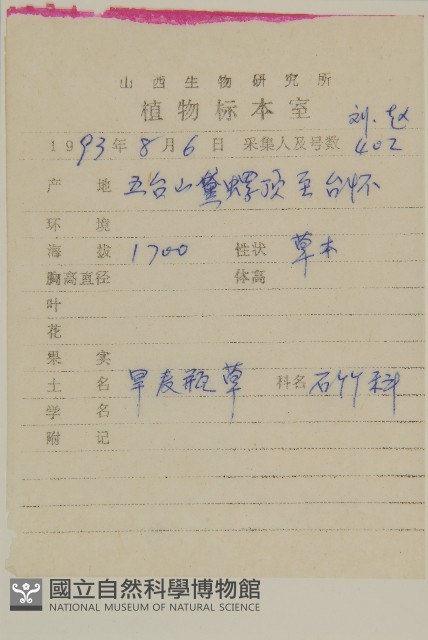 山西生物研究所
植物标本室
刘.赵
1993年8月6日 采集人及号数 402
产地 五台山黛螺顶至台怀
环境
海拔 1700 性状 草本
胸高直径 体高
叶
花
果实
土名 旱麦瓶草 科名 石竹科
学名
附记
國立自然科學博物館
NATIONAL MUSEUM OF NATURAL SCIENCE